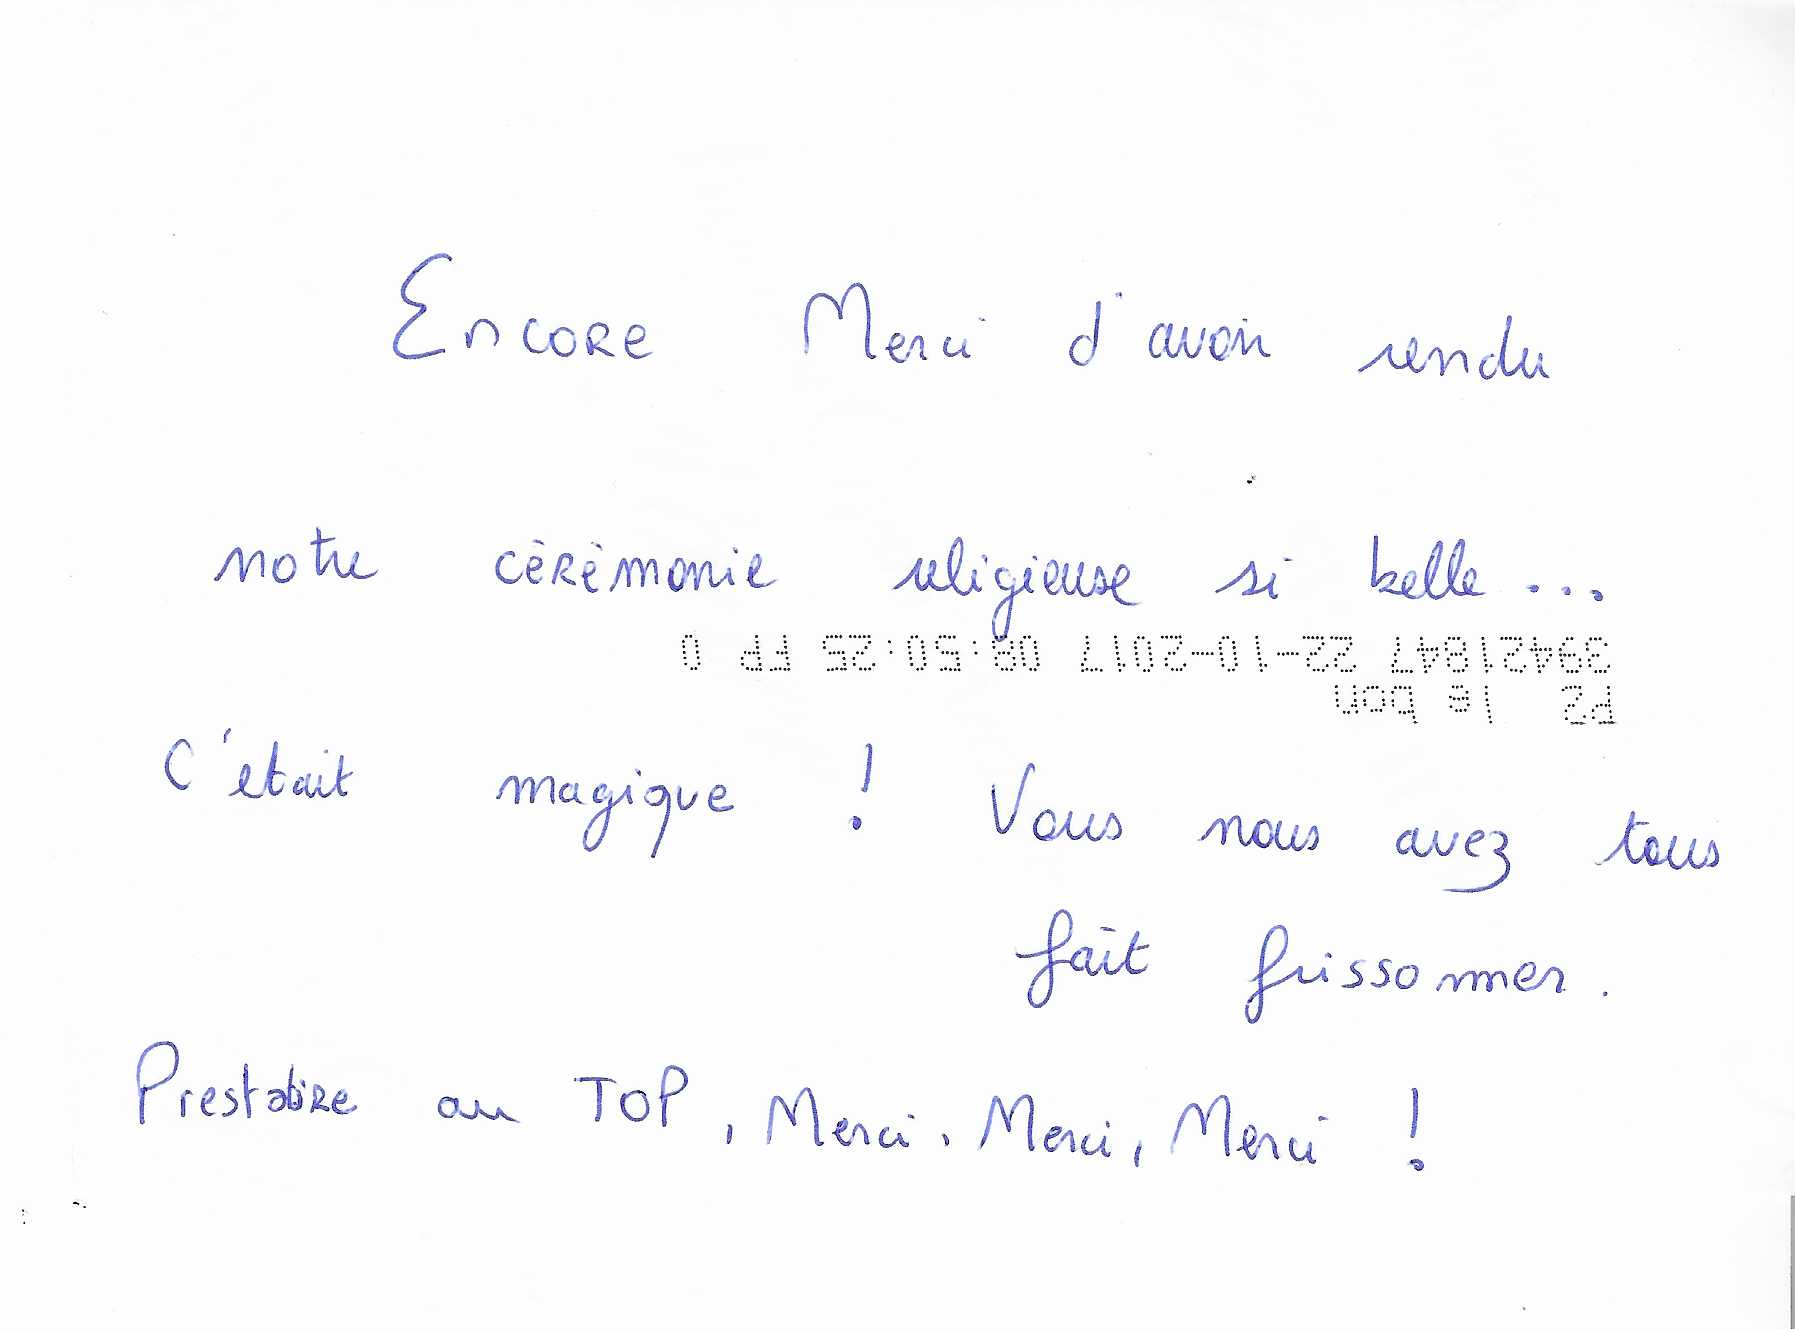 Encore Merci d'avoir rendu
notre cérémonie religieuse si belle...
39421847 22-10-2017 08:50:25 FP 0
P2 le bon
C'était magique ! Vous nous avez tous
fait frissonner.
Prestataire au TOP, Merci. Merci, Merci !